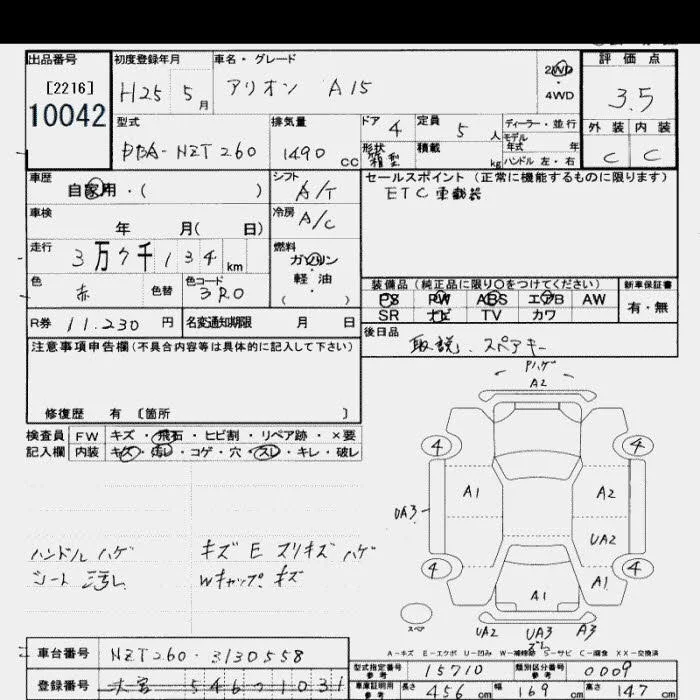 出品番号 初度登録年月 車名・グレード 評価点
[2216] H25 5月 アリオン A15 2WD 3.5
10042 4WD
型式 排気量 ドア 4 定員 5人 ディーラー・並行 外装 内装
DBA-NZT260 1490cc 形状 箱型 積載 kg モデル年式 年 C C
ハンドル 左・右
車歴 シフト セールスポイント (正常に機能するものに限ります)
自家用・( ) A/T ETC車載器
車検 冷房
年 月( 日) A/C
走行 燃料
3万7千134km ガソリン
色 色替 色コード 軽油
赤 3R0 ( )
装備品(純正品に限り○をつけてください) 新車保証書
PS PW ABS エアB AW 有・無
SR ナビ TV カワ
R券 11.230円 名変通知期限 月 日
後日品
取説、スペアキー
注意事項申告欄(不具合内容等は具体的に記入して下さい)
修復歴 有 〔箇所 〕
検査員 FW キズ・飛石・ヒビ割・リペア跡・×要
記入欄 内装 キズ・汚れ・コゲ・穴・スレ・キレ・破レ
Pハゲ
A2
4 4
A1 A2
UA3
UA2
4 4
A1
A1
スペア
UA2 UA3 A3
ハンドル ハゲ キズ E スリキズ ハゲ
シート 汚れ Wキャップ キズ
A-キズ E-エクボ U-凹み W-補修跡 S-サビ C-腐食 XX-交換済
車台番号 NZT260-3130558
型式指定番号 参考 15710 類別区分番号 参考 0009
登録番号 546 1031
車庫証明用 参考 長さ 456cm 幅 169cm 高さ 147cm